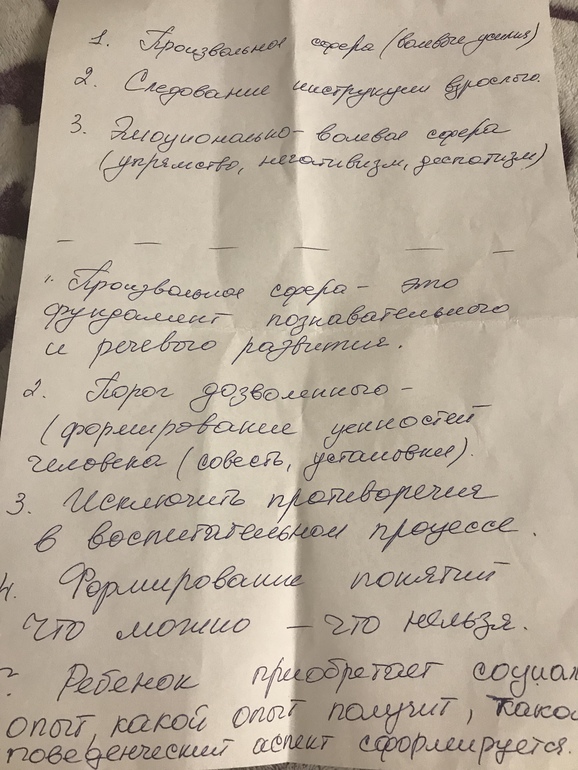 1. Произвольная сфера (волевые усилия)
2. Следование инструкции взрослого.
3. Эмоционально-волевая сфера
(упрямство, негативизм, деспотизм)
1. Произвольная сфера - это
фундамент познавательного
и речевого развития.
2. Порог дозволенного -
(формирование ценностей
человека (совесть, установки).
3. Исключить противоречия
в воспитательном процессе.
4. Формирование понятий
что можно - что нельзя.
Ребенок приобретает социал
опыт, какой опыт получит, тако
поведенческий аспект сформируется.